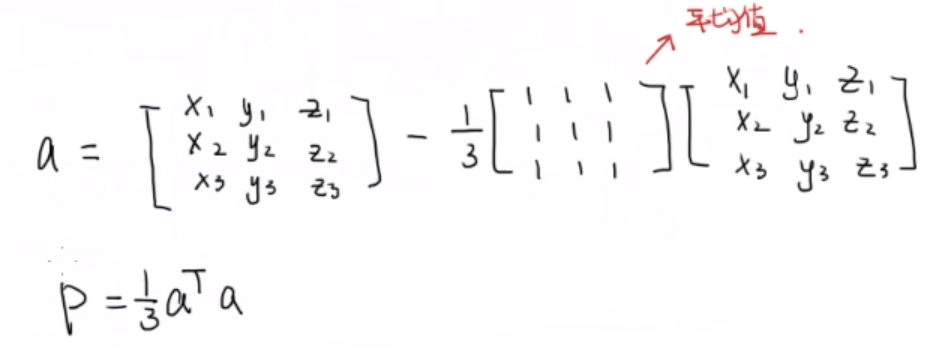 平均值.
a = [ x₁ y₁ z₁ ; x₂ y₂ z₂ ; x₃ y₃ z₃ ] - 1/3 [ 1 1 1 ; 1 1 1 ; 1 1 1 ] [ x₁ y₁ z₁ ; x₂ y₂ z₂ ; x₃ y₃ z₃ ]
P = 1/3 aᵀ a